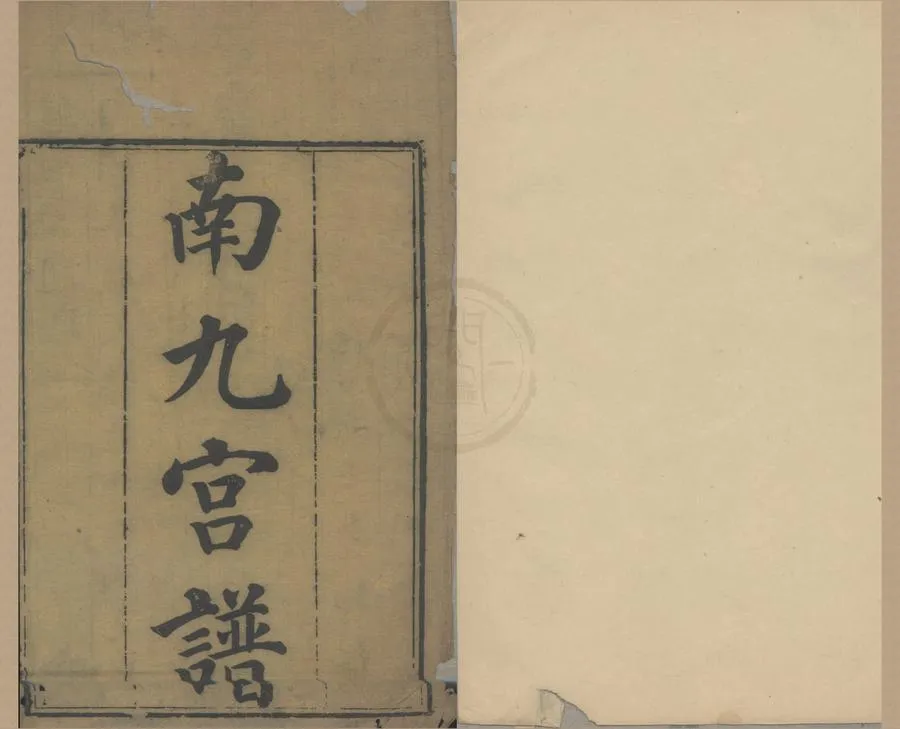 南九宮譜